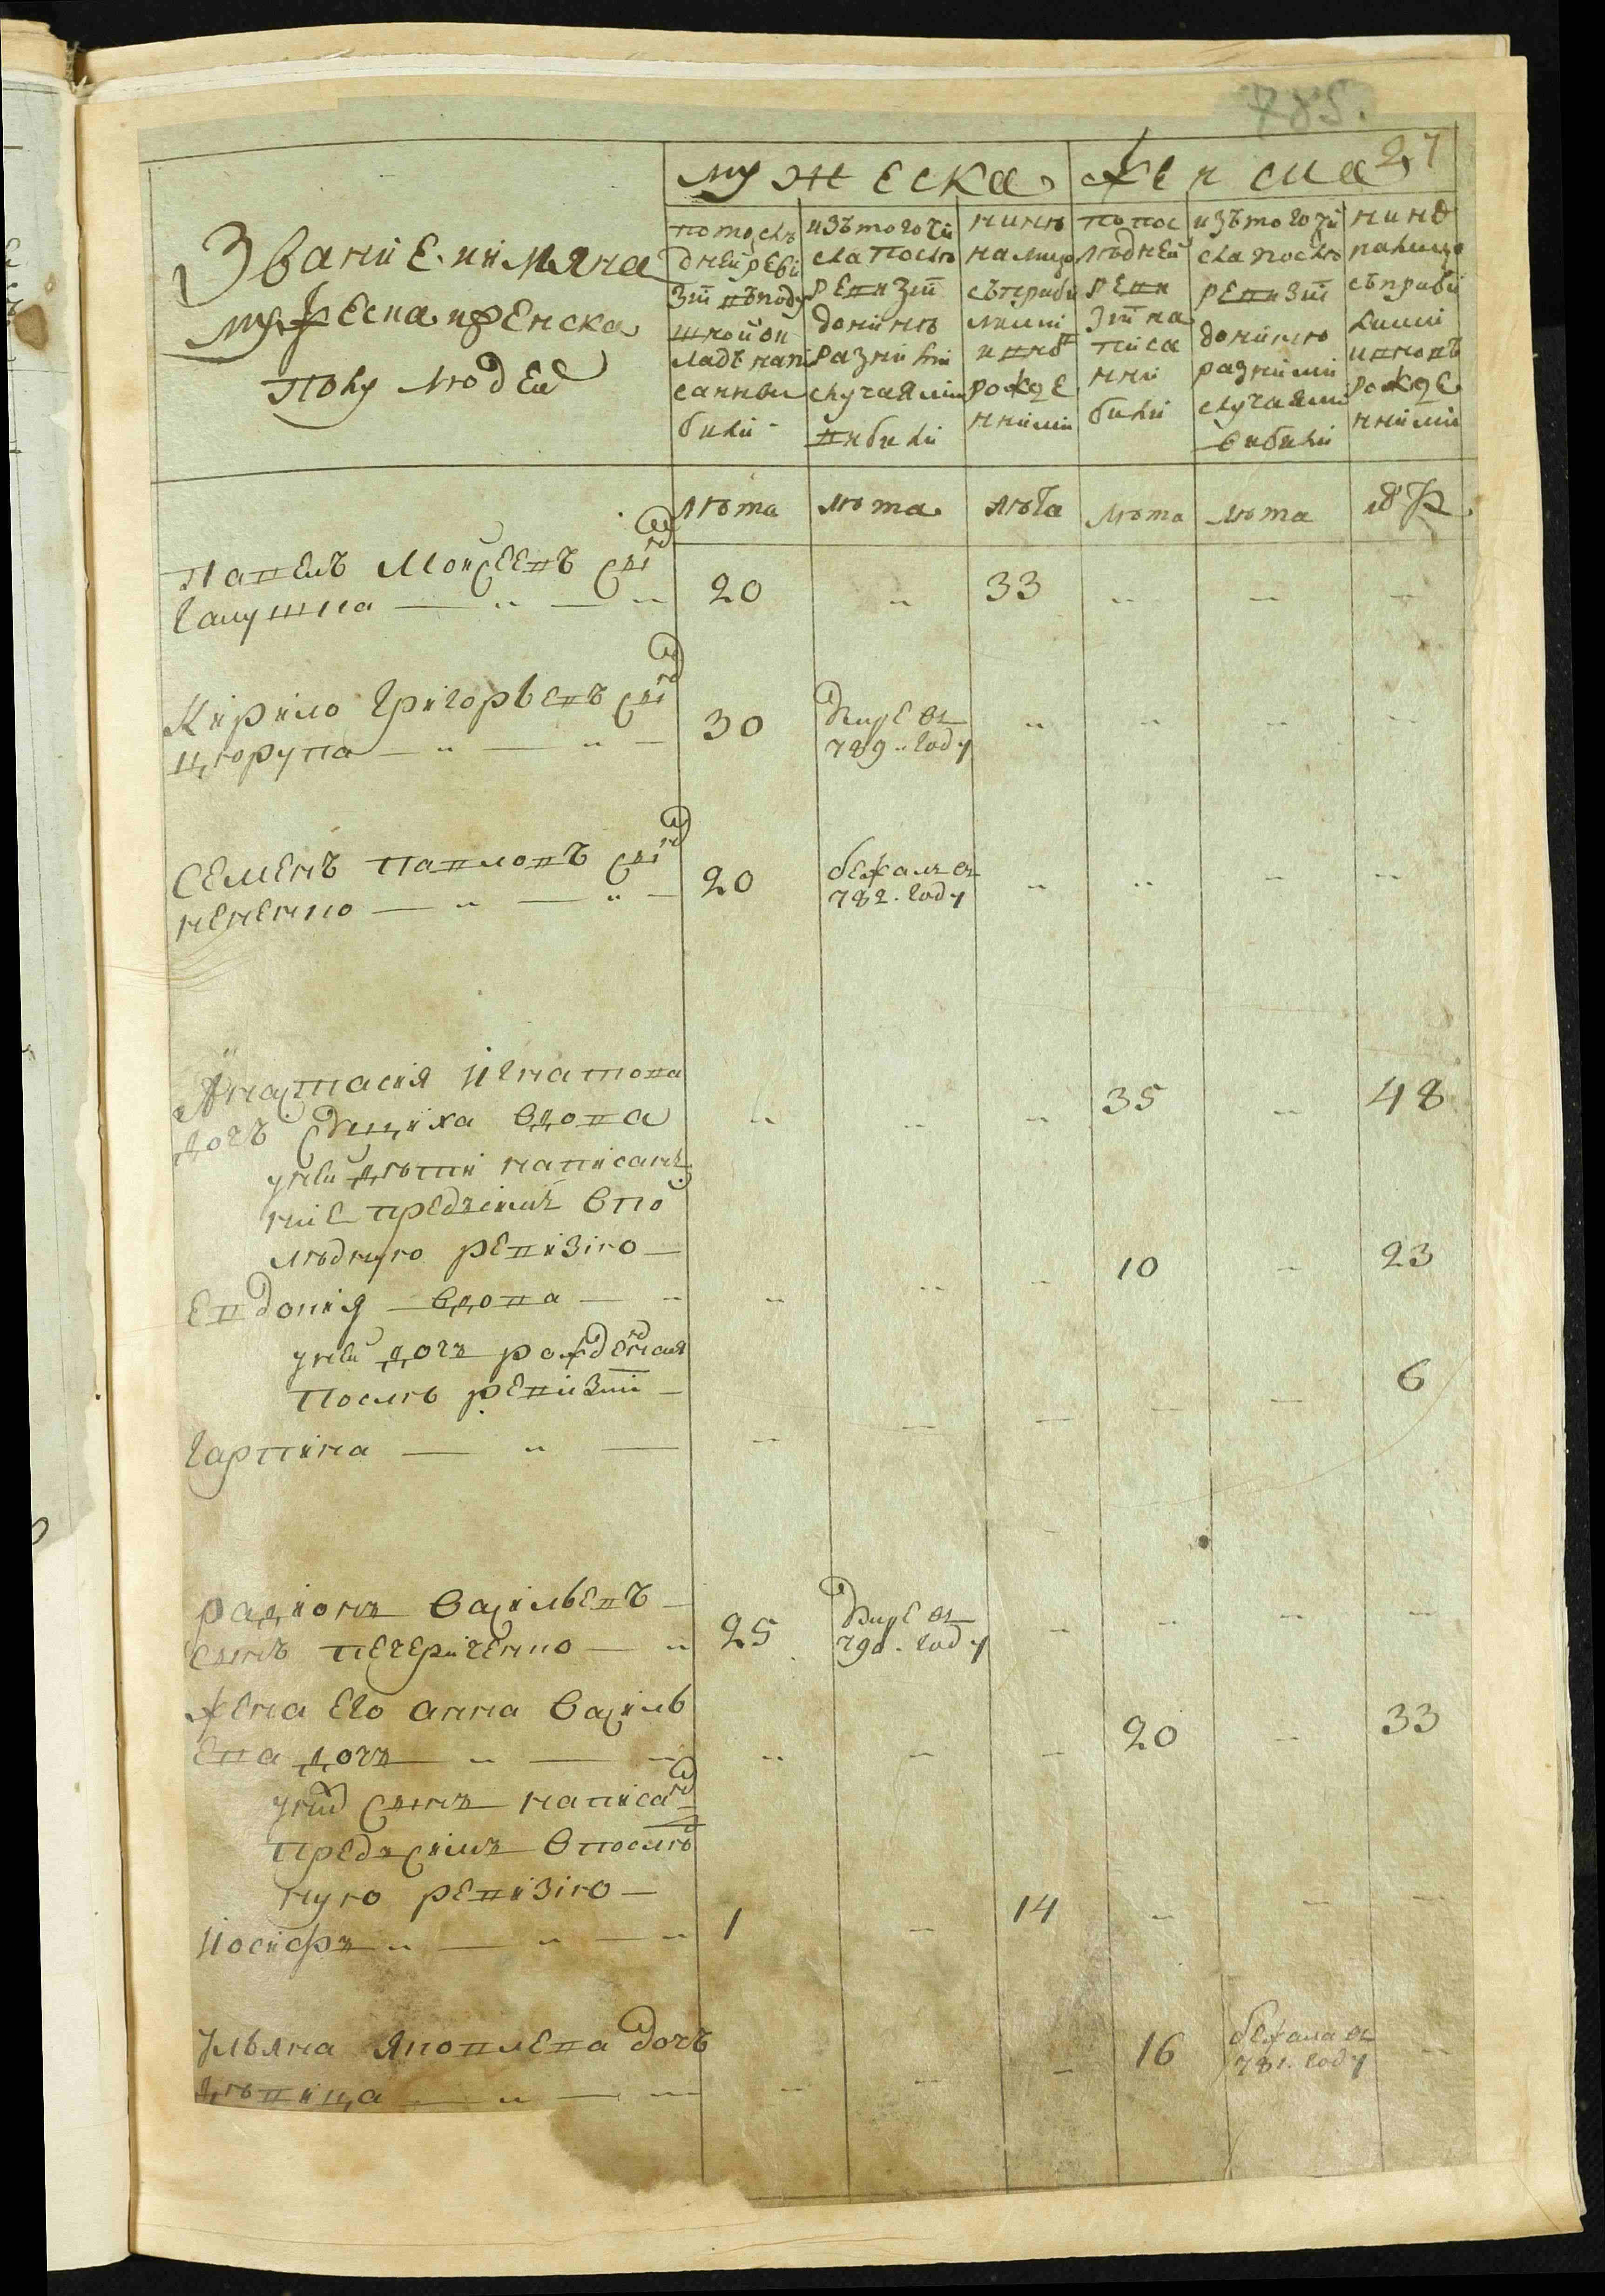 785.
27
мужеска
женска
Званіе иимяна
мужеска иженска
полу людей
попослѣ
дней реви
зіи въподу
шной ок
ладъ напи
санны
были
изътогочи
сла послѣ
ревизіи
донинѣ
разними
случаями
выбыли
нинѣ
налицо
съприбы
лими
ивновъ
рожде
нними
попос
лѣдней
реви
зіи на
писа
нни
были
изътогочи
сла послѣ
ревизіи
донинѣ
разними
случаями
выбыли
нинѣ
налицо
съприбы
лими
ивновъ
рожде
нними
лѣта
лѣта
лѣта
лѣта
лѣта
лѣта
Павелъ Мойсеевъ снъ
Галушка — „ — „ 20 „ 33 „ — —
Кирило Григорьевъ снъ
Цюрупа — „ — „ — 30 умре въ 789„ году „ „ „ „
Семенъ Павловъ снъ
Нененко — „ — „ — 20 бежалъ въ 782. году „ „ „ „
Анастасія Игнатова
дочъ вдова „ „ „ 35 „ 48
уней дѣти написан
ніе предъсимъ впо
лѣдную ревизію —
Евдокія вдова — „ „ „ „ 10 „ 23
уней дочъ рожденная
послѣ ревизіи —
Гарпина — „ — — — — — — 6
Радіонъ Васильевъ —
сынъ Печериченко — „ 25 умре въ 790. году „ „ „ „
Жена его Анна Василь
ева дочъ „ — „ „ — — 20 — 33
уних сынъ написан
предъсимъ впослѣд
нуюю ревизію —
Иосифъ „ — „ — „ 1 — 14 — — —
Ульяна Яковлева дочъ
дѣвица — „ — „ „ „ — 16 бежала въ 781. году —